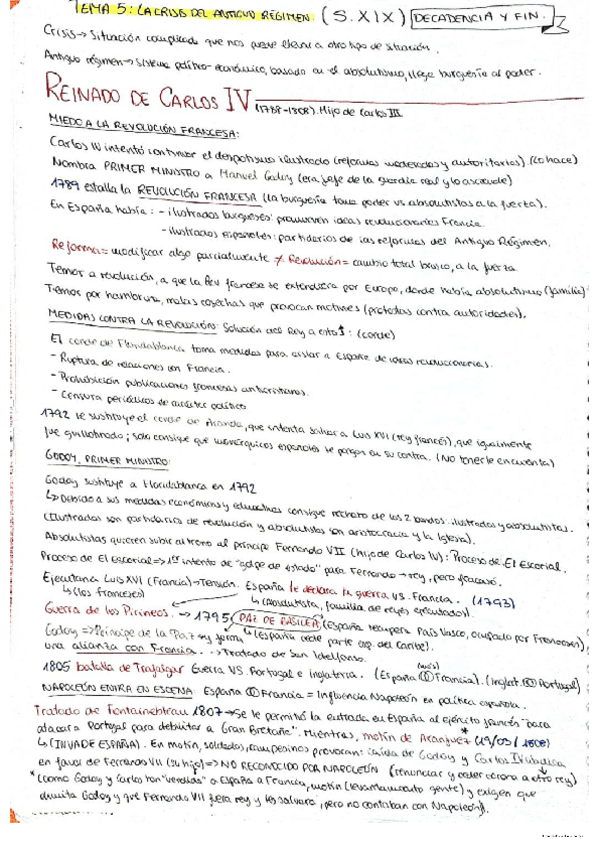 TEMA 5: LA CRISIS DEL ANTIGUO RÉGIMEN. (S.XIX) DECADENCIA Y FIN. 3
Crisis → Situación complicada que nos puede llevar a otro tipo de situación.
Antiguo régimen → Sistema político-económico, basado en el absolutismo, llega burguesía al poder.
REINADO DE CARLOS IV (1788-1808). Hijo de Carlos III
MIEDO A LA REVOLUCIÓN FRANCESA:
Carlos IV intentó continuar el despotismo ilustrado (reformas moderadas y autoritarias). (Lo hace)
Nombra PRIMER MINISTRO a Manuel Godoy (era jefe de la guardia real y lo asciende)
1789 estalla la REVOLUCIÓN FRANCESA (la burguesía toma poder vs absolutistas a la fuerza).
En España había: - ilustrados burgueses: promueven ideas revolucionarias Francia.
- ilustrados españoles: partidarios de las reformas del Antiguo Régimen.
Reforma = modificar algo parcialmente ≠ Revolución = cambio total brusco, a la fuerza.
Temor a revolución, a que la Rev francesa se extendiera por Europa, donde había absolutismo (familia)
Temor por hambruna, malas cosechas que provocan motines (protestas contra autoridades).
MEDIDAS CONTRA LA REVOLUCIÓN: Solución del Rey a esto ↑: (conde)
El conde de Floridablanca toma medidas para aislar a España de ideas revolucionarias.
- Ruptura de relaciones con Francia.
- Prohibición publicaciones francesas
- Censura periódicos de carácter político
1792 le sustituye el conde de Aranda, que intenta salvar a Luis XVI (rey francés), que igualmente
fue guillotinado; solo consigue que monárquicos españoles se pongan en su contra. (No tenerle en cuenta)
GODOY, PRIMER MINISTRO:
Godoy sustituye a Floridablanca en 1792
↳ Debido a sus medidas económicas y educativas consigue rechazo de los 2 bandos: ilustrados y absolutistas.
(Ilustrados son partidarios de revolución y absolutistas son aristocracia y la Iglesia).
Absolutistas quieren subir al trono al príncipe Fernando VII (hijo de Carlos IV): Proceso de El Escorial.
Proceso de El Escorial => 1er intento de "golpe de estado" para Fernando → rey, pero fracasó.
Ejecutan a Luis XVI (Francia) → Tensión. España le declara la guerra vs. Francia. (1793)
↳ (los franceses) ↳ (Absolutista, familia de reyes ejecutados).
Guerra de los Pirineos. → 1795 PAZ DE BASILEA (España recupera País Vasco, ocupado por Franceses)
Godoy => Príncipe de la Paz → y firma ↳ (España cede parte esp. del Caribe).
una alianza con Francia. → Tratado de San Ildefonso.
1805 batalla de Trafalgar Guerra VS. Portugal e Inglaterra. (España Francia). (Inglat. Portugal)
NAPOLEÓN ENTRA EN ESCENA: España Francia = Influencia Napoleón en política española.
Tratado de Fontainebleau 1807 → Se le permitió la entrada en España al ejército francés "para
atacar a Portugal para debilitar a Gran Bretaña". Mientras, motín de Aranjuez* (19/03/1808)
↳ (INVADE ESPAÑA). En motín, soldados, campesinos provocan: caída de Godoy y Carlos IV abdica
en favor de Fernando VII (su hijo) => NO RECONOCIDO POR NAPOLEÓN (renunciar y ceder corona a otro rey)
* (como Godoy y Carlos han "vendido" a España a Francia, motín (levantamiento gente) y exigen que
dimita Godoy y que Fernando VII fuera rey y les salvara, pero no contaban con Napoleón).